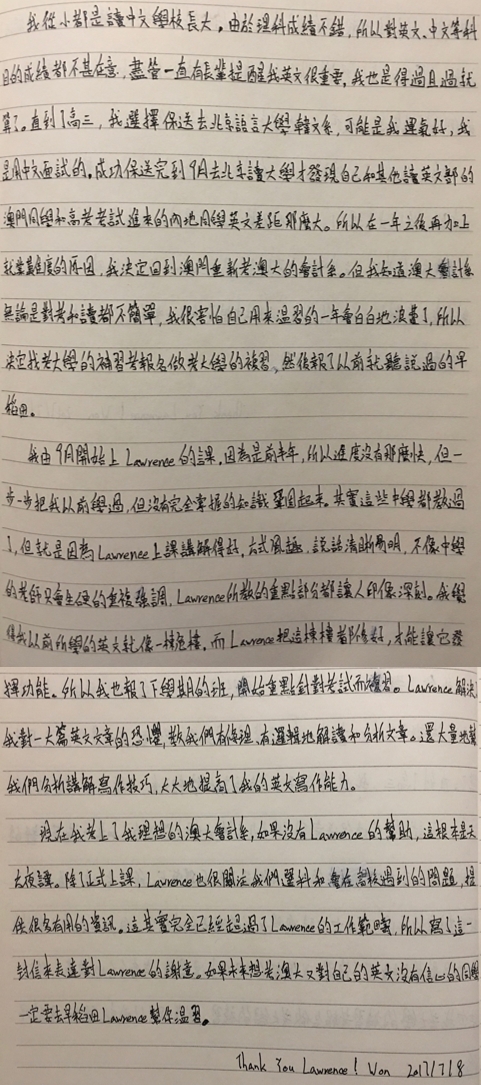 我從小都是讀中文學校長大，由於理科成績不錯，所以對英文、中文等科
目的成績都不甚在意，儘管一直有長輩提醒我英文很重要，我也是得過且過就
算了。直到了高三，我選擇保送去北京語言大學韓文系，可能是我運氣好，我
是用中文面試的。成功保送完到9月去北京讀大學才發現自己和其他讀英文部的
澳門同學和高考考試進來的內地同學英文差距那麼大。所以在一年之後再加上
就業難度的原因，我決定回到澳門重新考澳大的會計系。但我知道澳大會計系
無論是對考和讀都不簡單，我很害怕自己用來溫習的一年會白白地浪費了，所以
決定找考大學的補習老報名做考大學的複習，然後報了以前就聽說過的早
稻田。
我由9月開始上Lawrence的課，因為是前半年，所以進度沒有那麼快，但一
步一步把我以前學過，但沒有完全掌握的知識鞏固起來。其實這些中學都教過
了，但就是因為Lawrence上課講解得好，方式風趣，說話清晰易明，不像中學
的老師只會生硬的重複強調，Lawrence所教的重點部分都讓人印像深刻。我覺
得我以前所學的英文就像一棟危樓，而Lawrence把這棟樓都修好，才能讓它發
揮功能。所以我也報了下學期的班，開始重點針對考試而複習。Lawrence解決
我對一大篇英文文章的恐懼，教我們有條理、有邏輯地解讀和分析文章。還大量地幫
我們分析講解寫作技巧，大大地提高了我的英文寫作能力。
現在我考上了我理想的澳大會計系，如果沒有Lawrence的幫助，這根本是天
大夜譚。除了正式上課，Lawrence也很關注我們選科和會在高校遇到的問題，提
供很多有用的資訊。這其實完全已經超過了Lawrence的工作範疇，所以寫了這一
封信來表達對Lawrence的謝意。如果未來想考澳大又對自己的英文沒有信心的同學
一定要去早稻田Lawrence幫你溫習。
Thank You Lawrence! Won 2017/7/8